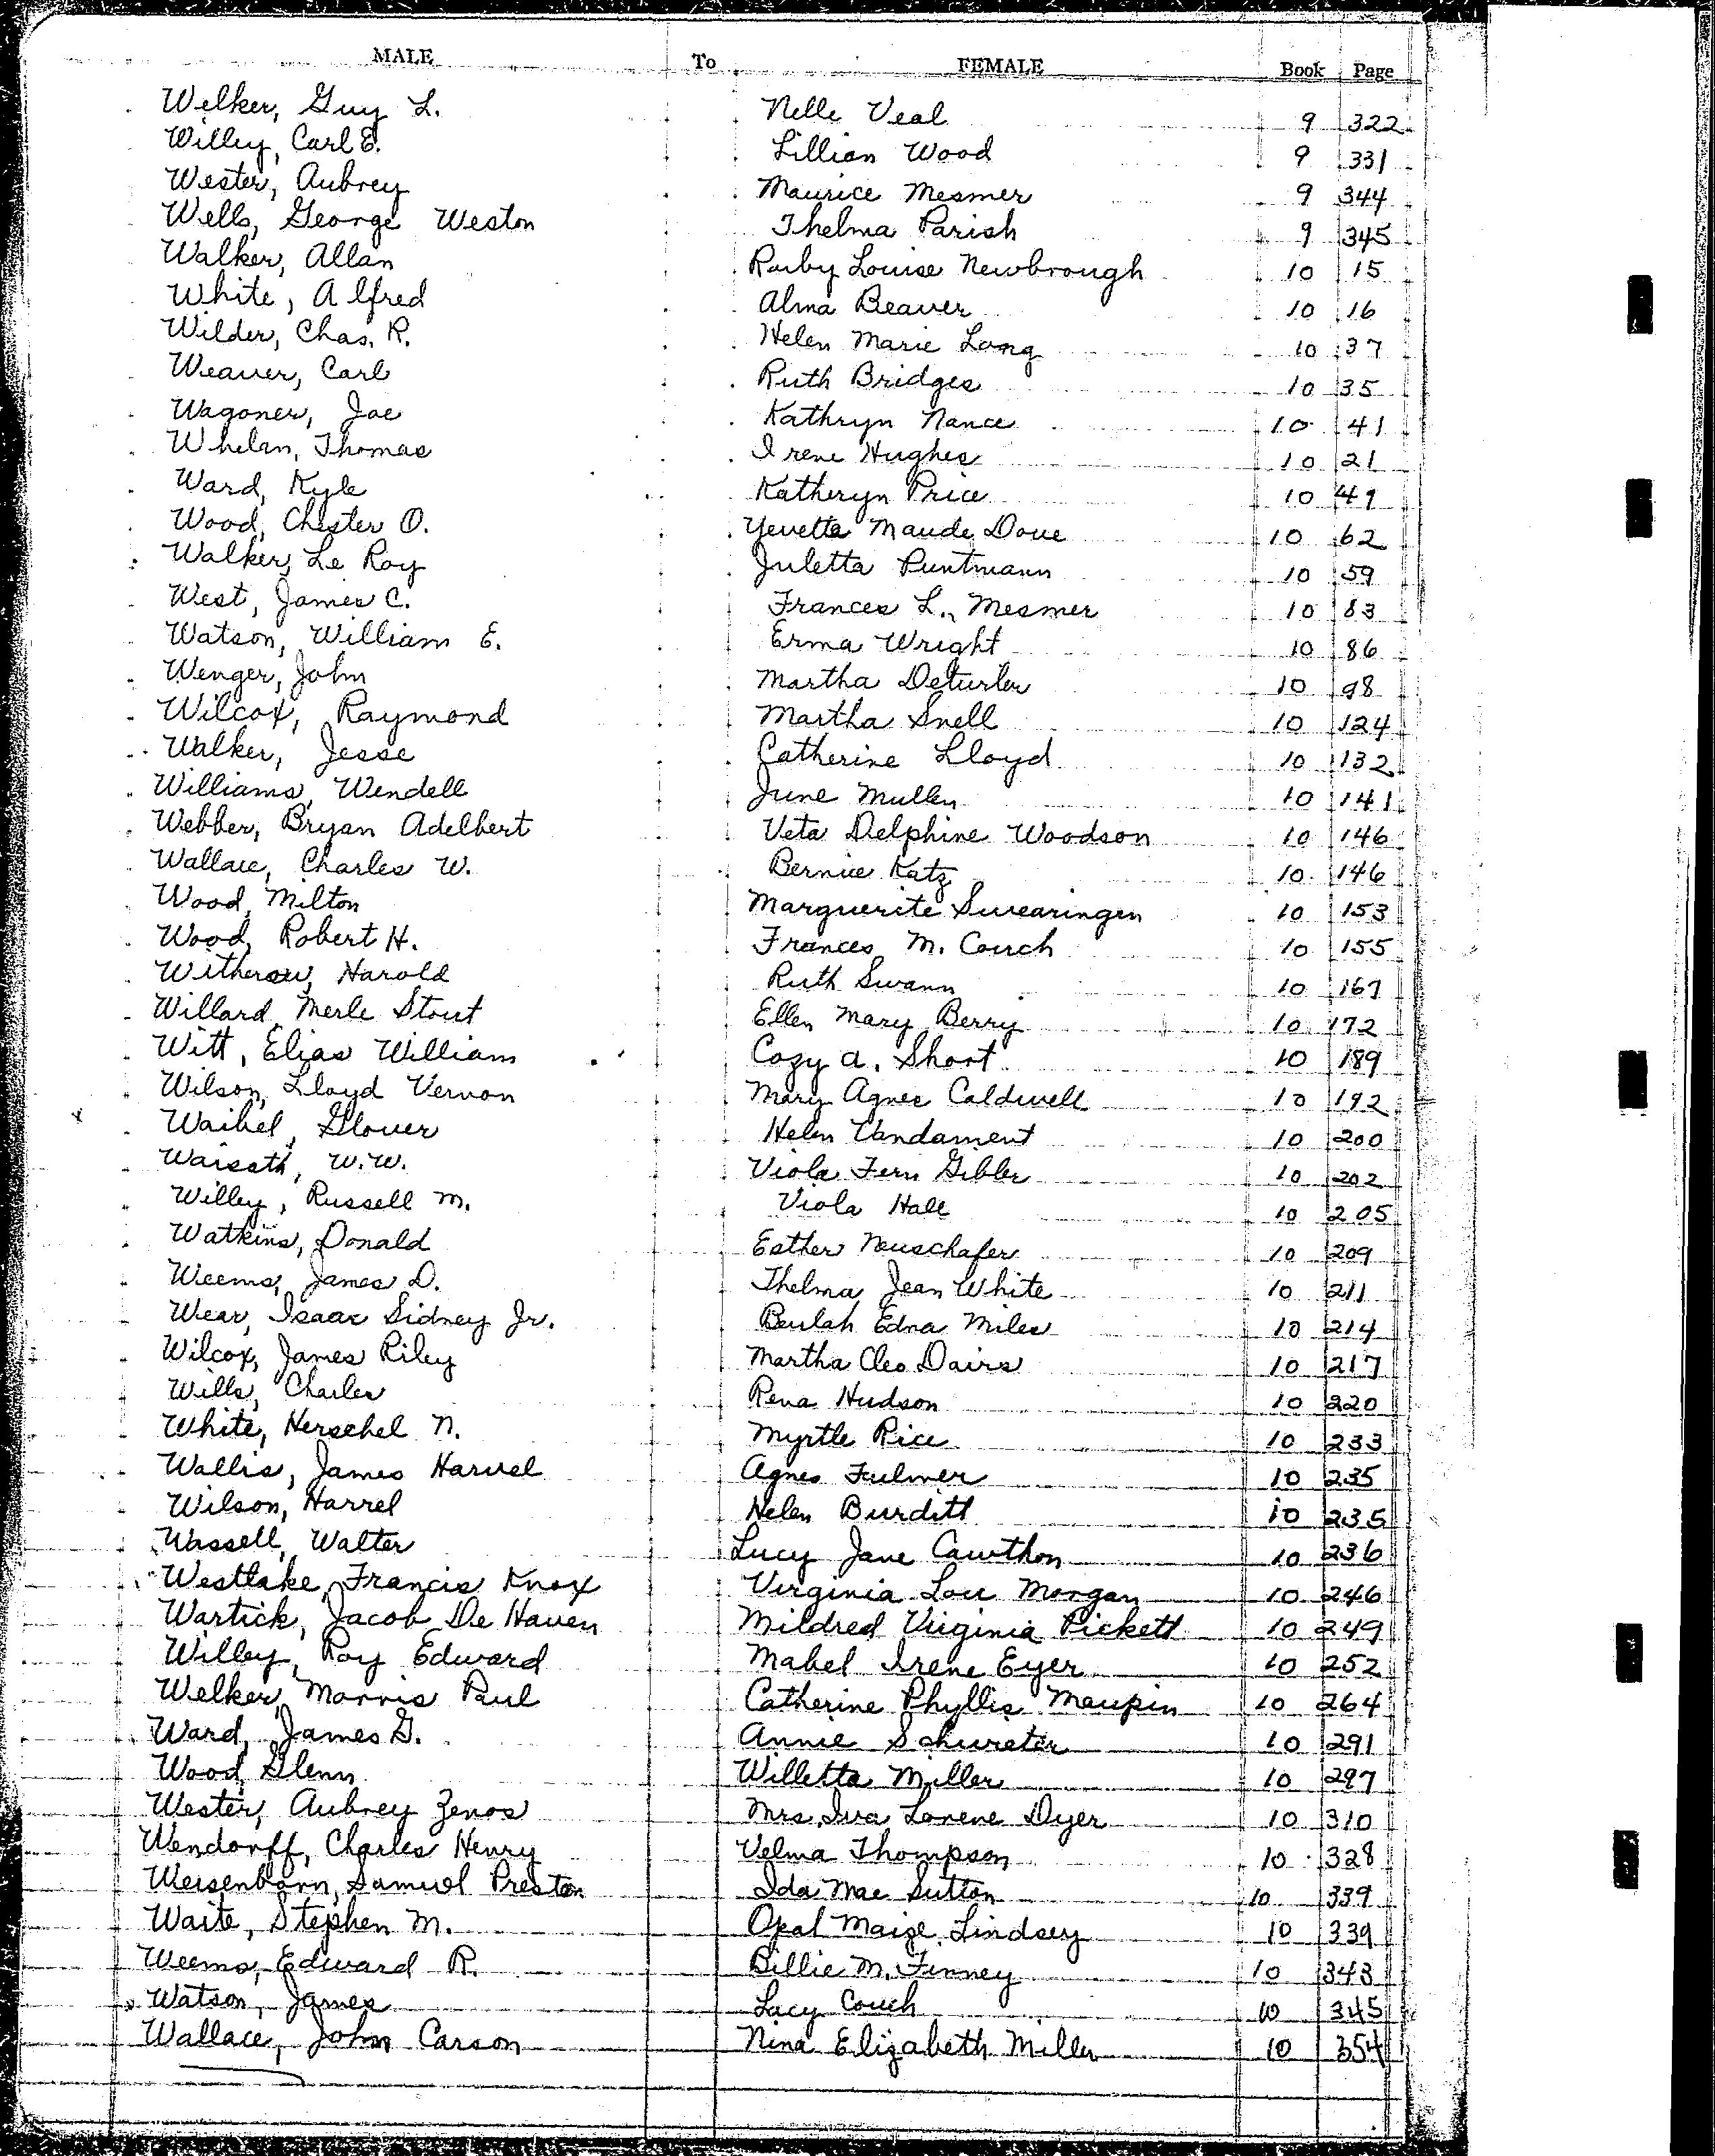 MALE To FEMALE Book Page
Welker, Guy L. Nelle Veal 9 322
Willey, Carl E. Lillian Wood 9 331
Wester, Aubrey Maurice Mesmer 9 344
Wells, George Weston Thelma Parish 9 345
Walker, Allan Ruby Louise Newbrough 10 15
White, Alfred Alma Beaver 10 16
Wilder, Chas. R. Helen Marie Long 10 37
Weaver, Carl Ruth Bridges 10 35
Wagoner, Joe Kathryn Nance 10 41
Whelan, Thomas Irene Hughes 10 21
Ward, Kyle Katheryn Price 10 49
Wood, Chester O. Yevette Maude Dove 10 62
Walker, Le Roy Juletta Puntmann 10 59
West, James C. Frances L. Mesmer 10 83
Watson, William E. Erma Wright 10 86
Wenger, John Martha Deturler 10 98
Wilcox, Raymond Martha Snell 10 124
Walker, Jesse Catherine Lloyd 10 132
Williams, Wendell June Mullen 10 141
Webber, Bryan Adelbert Veta Delphine Woodson 10 146
Wallace, Charles W. Bernice Katz 10 146
Wood, Milton Marguerite Swearingen 10 153
Wood, Robert H. Frances M. Couch 10 155
Witherow, Harold Ruth Swann 10 167
Willard, Merle Stout Ellen Mary Berry 10 172
Witt, Elias William Cozy A. Short 10 189
Wilson, Lloyd Vernon Mary Agnes Caldwell 10 192
Waibel, Glover Helen Vandament 10 200
Waisath, W.W. Viola Fern Gibler 10 202
Willey, Russell M. Viola Hall 10 205
Watkins, Donald Esther Neuschafer 10 209
Weems, James D. Thelma Jean White 10 211
Wear, Isaac Sidney Jr. Beulah Edna Miles 10 214
Wilcox, James Riley Martha Cleo Dairs 10 217
Wills, Charles Rena Hudson 10 220
White, Herschel N. Myrtle Rice 10 233
Wallis, James Harvel Agnes Fulmer 10 235
Wilson, Harrel Helen Burditt 10 235
Wassell, Walter Lucy Jane Cawthon 10 236
Westlake, Francis Knox Virginia Lou Morgan 10 246
Wartick, Jacob De Haven Mildred Virginia Pickett 10 249
Willey, Roy Edward Mabel Irene Eyer 10 252
Welker, Morris Paul Catherine Phyllis Maupin 10 264
Ward, James G. Annie Schureter 10 291
Wood, Glenn Willetta Miller 10 297
Wester, Aubrey Zenos Mrs. Iva Lorene Dyer 10 310
Wendorff, Charles Henry Velma Thompson 10 328
Weisenborn, Samuel Preston Ida Mae Sutton 10 339
Waite, Stephen M. Opal Maize Lindsey 10 339
Weems, Edward R. Billie M. Finney 10 343
Watson, James Lucy Couch 10 345
Wallace, John Carson Nina Elizabeth Miller 10 354